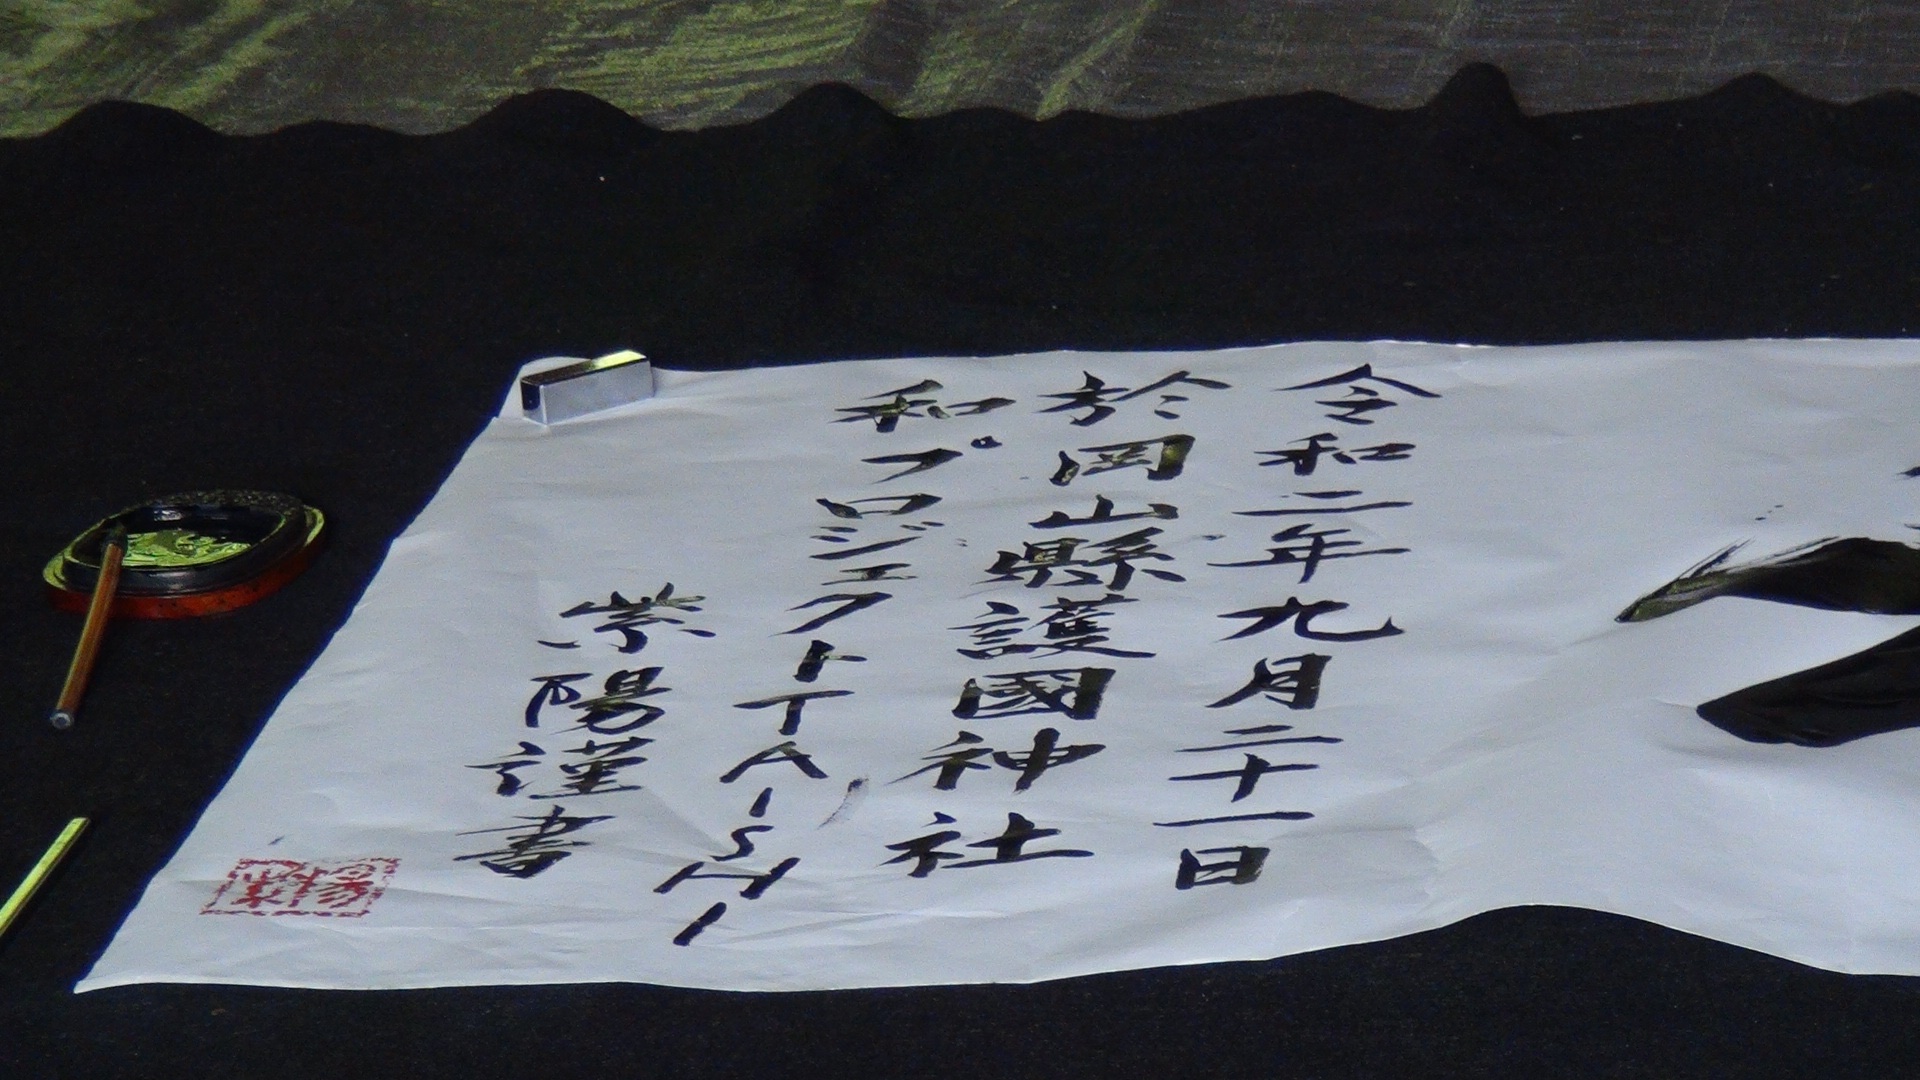 令和二年九月二十一日
於岡山縣護國神社
和プロジェクトTAISHI
紫陽謹書